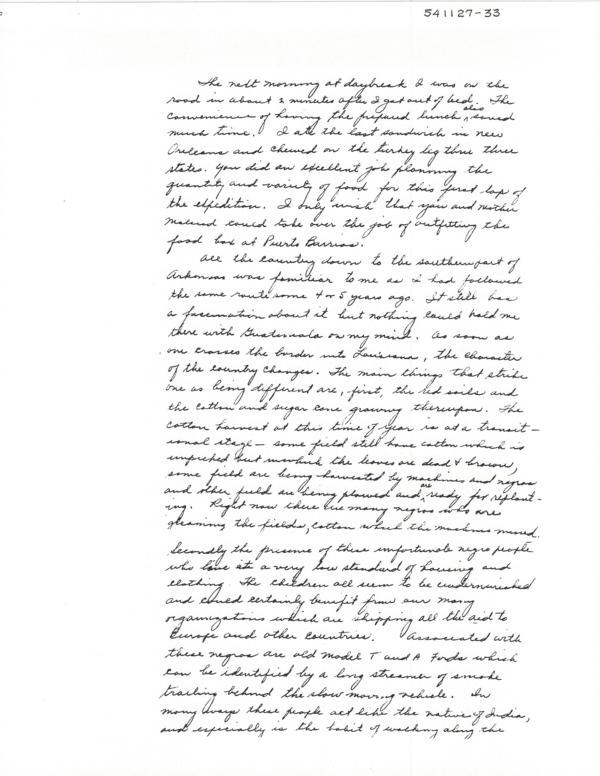 541127-33
The next morning at daybreak I was on the
road in about 2 minutes after I got out of bed. The
convenience of having the prepared lunch also saved
much time. I ate the last sandwich in New
Orleans and chewed on the turkey leg thru three
states. You did an excellent job planning the
quantity and variety of food for this first lap of
the expedition. I only wish that you and Mother
could take over the job of outfitting the
food box at Puerto Barrios.
All the country down to the southern part of
Arkansas was familiar to me as I had followed
the same route some 4 or 5 years ago. It still has
a fascination about it but nothing could hold me
there with Guatemala on my mind. As soon as
one crosses the border into Louisiana, the character
of the country changes. The main things that strike
one as being different are, first, the red soils and
the cotton and sugar cane growing thereupon. The
cotton harvest at this time of year is at a transit-
ional stage - some field still have cotton which is
unpicked but in which the leaves are dead & brown,
some field are being harvested by machines and negros
and other field are being plowed and are ready for replant-
ing. Right now there are many negros who are
gleaming the fields, cotton which the machines missed.
Secondly the presence of these unfortunate negro people
who live at a very low standard of housing and
clothing. The children all seem to be undernourished
and could certainly benefit from our many
organizations which are shipping all the aid to
Europe and other countries. Associated with
these negros are old model T and A Fords which
can be identified by a long streamer of smoke
trailing behind the slow moving vehicle. In
many ways these people act like the native of India,
and especially is the habit of walking along the